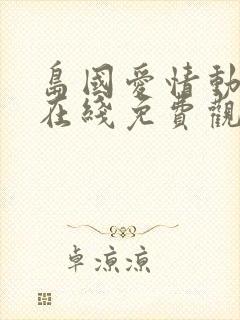 島國愛情動
在綫免費觀
卓涼涼